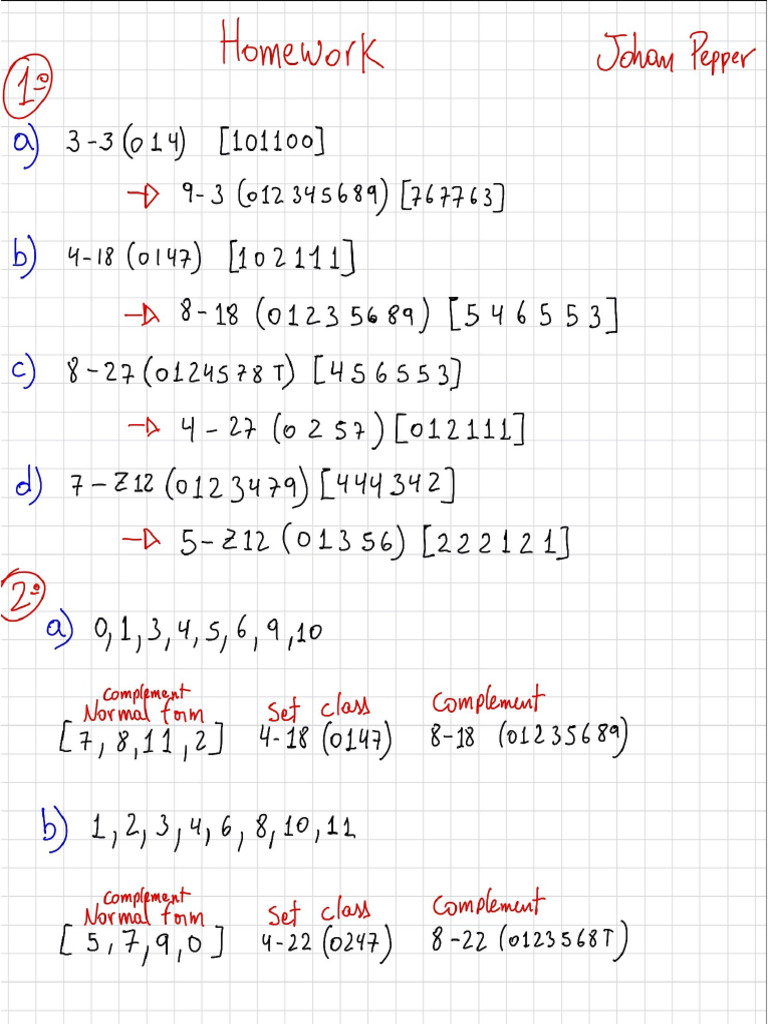 Homework Johan Pepper
1º
a) 3-3 (014) [101100]
→ 9-3 (012345689) [767763]
b) 4-18 (0147) [102111]
→ 8-18 (01235689) [546553]
c) 8-27 (0124578T) [456553]
→ 4-27 (0257) [012111]
d) 7-Z12 (0123479) [444342]
→ 5-Z12 (01356) [222121]
2º
a) 0, 1, 3, 4, 5, 6, 9, 10
Complement Normal form Set class Complement
[7, 8, 11, 2] 4-18 (0147) 8-18 (01235689)
b) 1, 2, 3, 4, 6, 8, 10, 11
Complement Normal form Set class Complement
[5, 7, 9, 0] 4-22 (0247) 8-22 (0123568T)